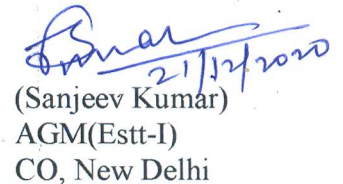 21/12/2020
(Sanjeev Kumar)
AGM(Estt-I)
CO, New Delhi